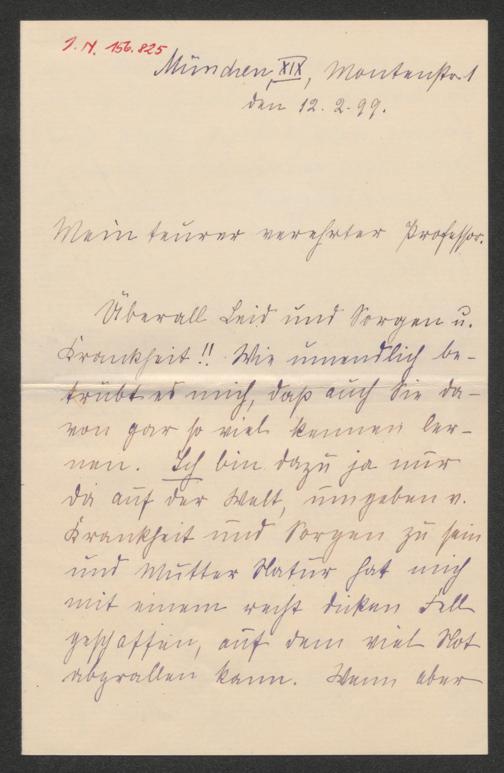 I. N. 156.825
München, XIX, Montenstr. 1
den 12. 2. 99.
Mein teurer verehrter Professor.
Überall Leid und Sorgen u.
Krankheit!! Wie unendlich be-
trübt es mich, daß auch Sie da-
von gar so viel kennen ler-
nen. Ich bin dazu ja nur
da auf der Welt, umgeben v.
Krankheit und Sorgen zu sein
und Mutter Natur hat mich
mit einem recht dicken Fell
geschaffen, auf dem viel Not
abprallen kann. Wenn aber